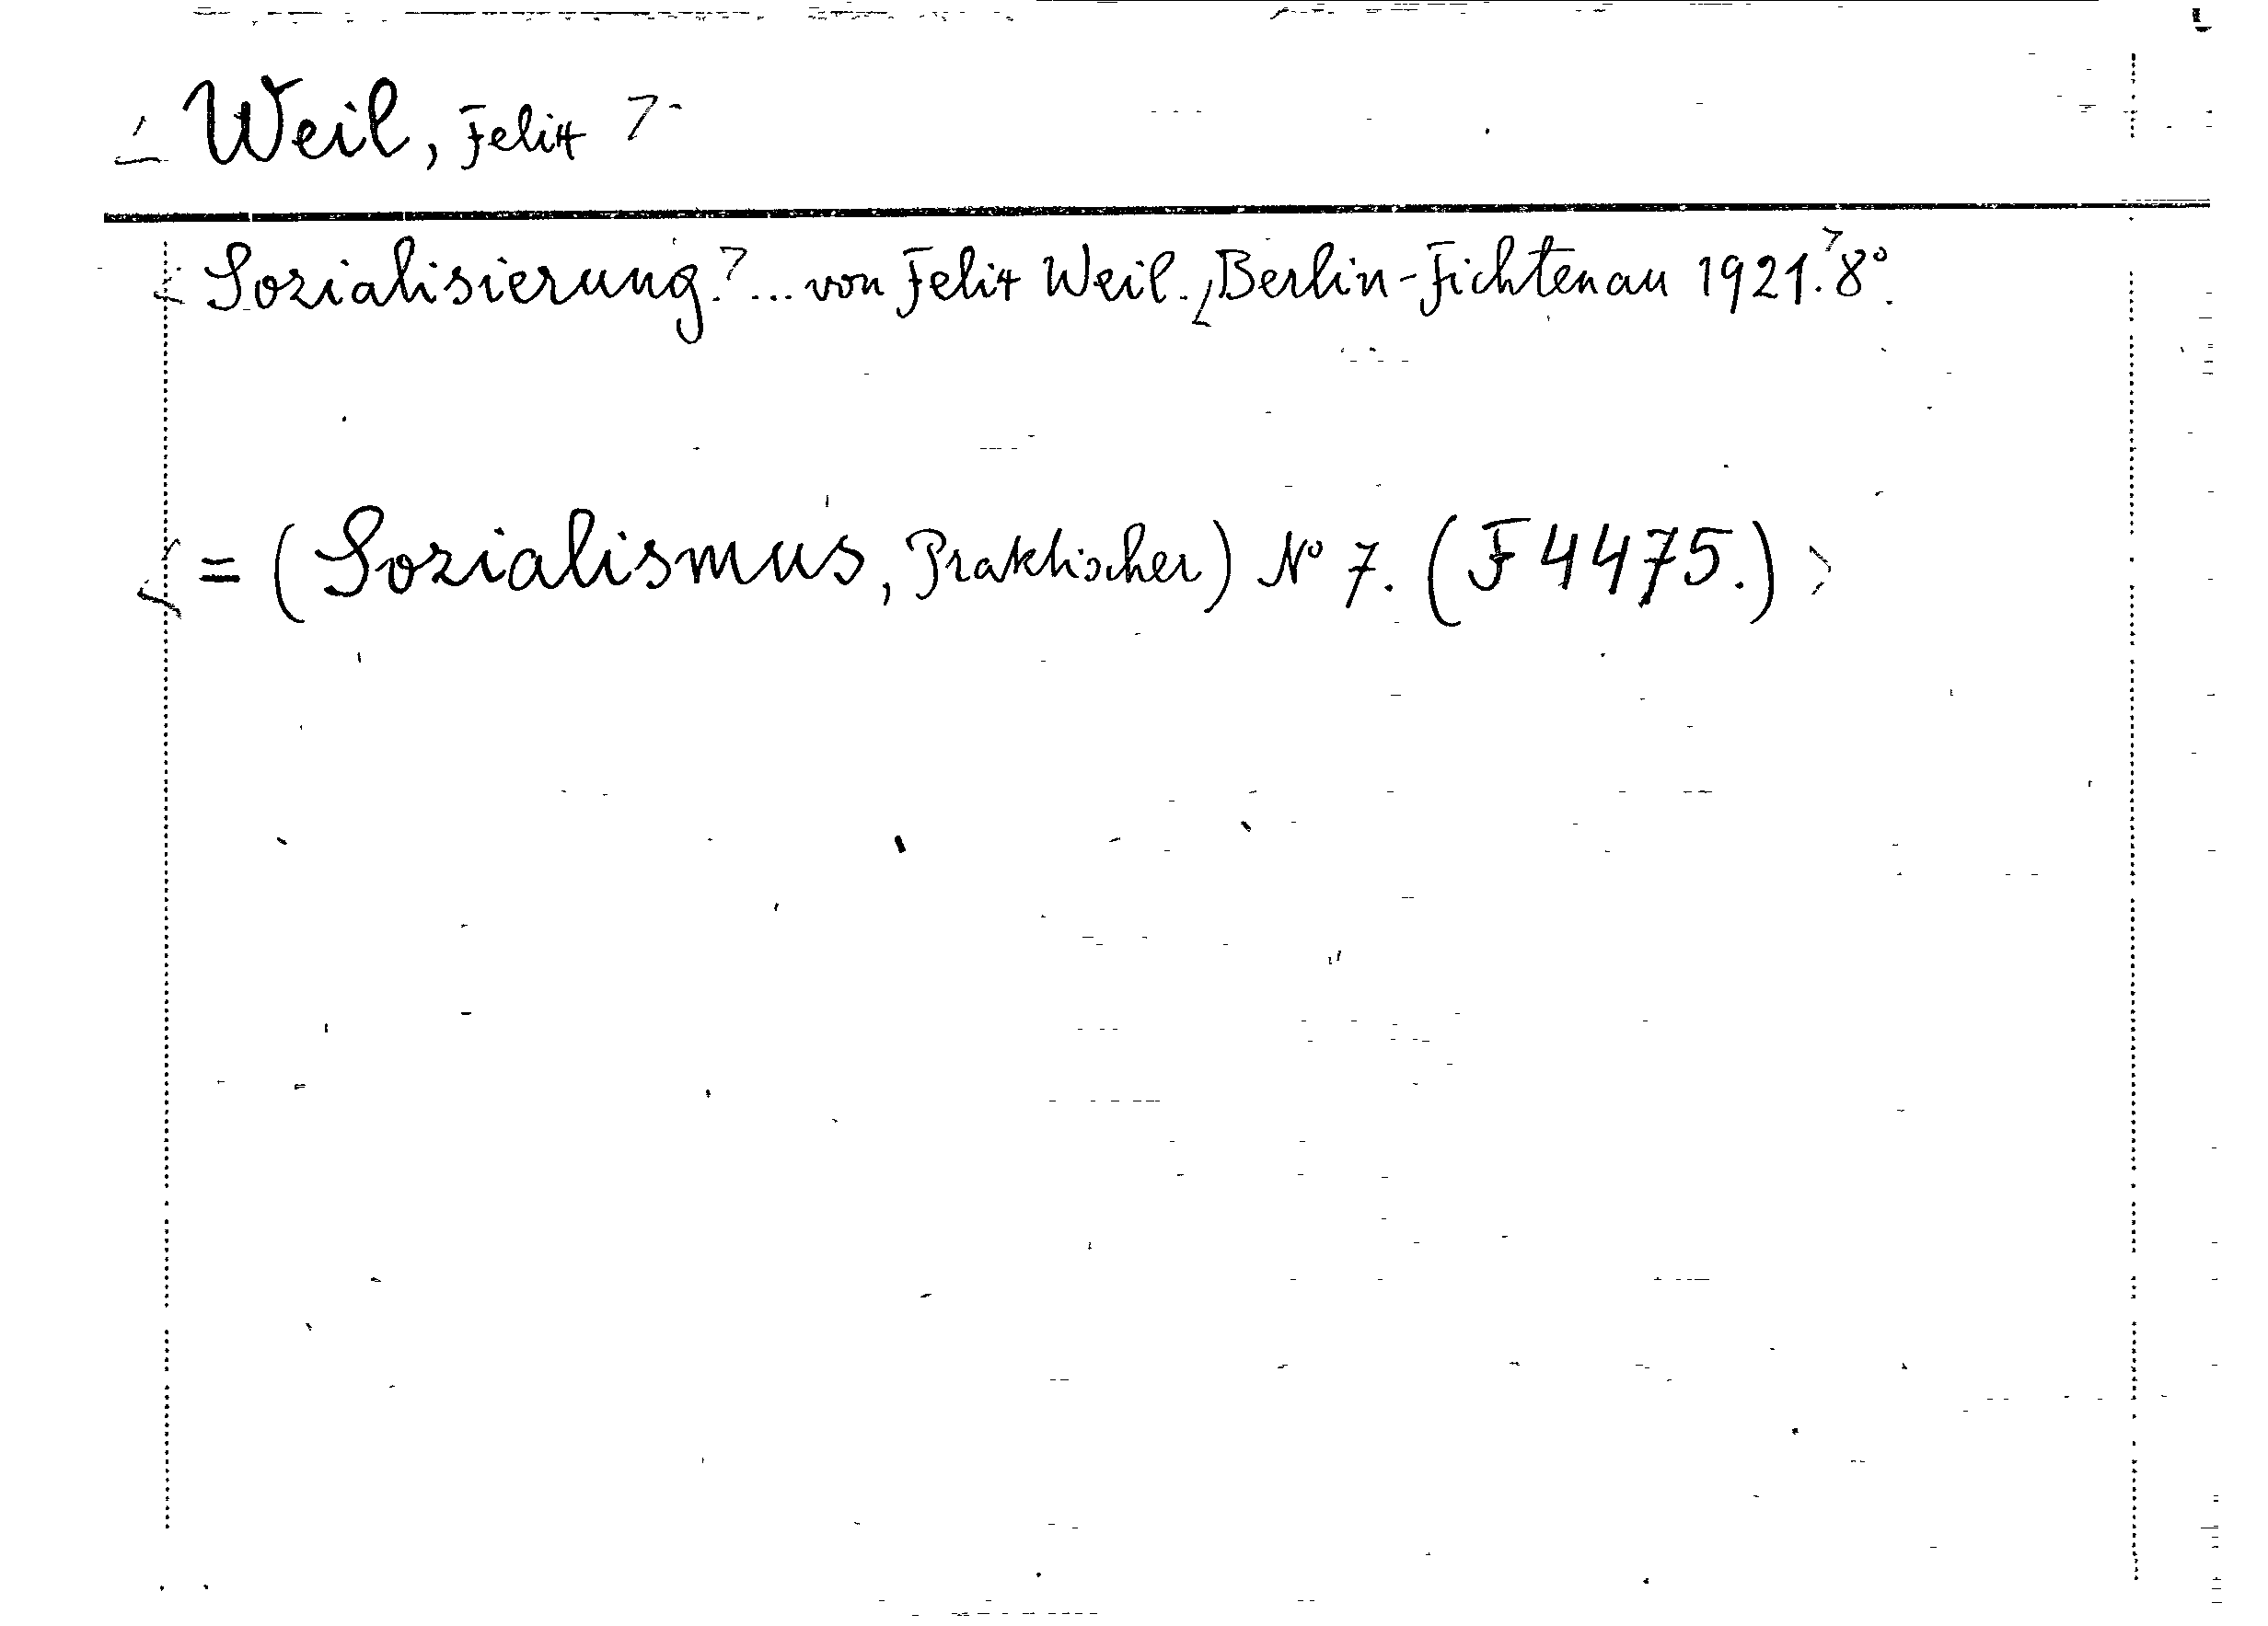 < Weil, Felix >
< Sozialisierung. > ... von Felix Weil. < Berlin-Fichtenau 1921. > 8°.
< = (Sozialismus, Praktischer) No 7. (F 4475.) >